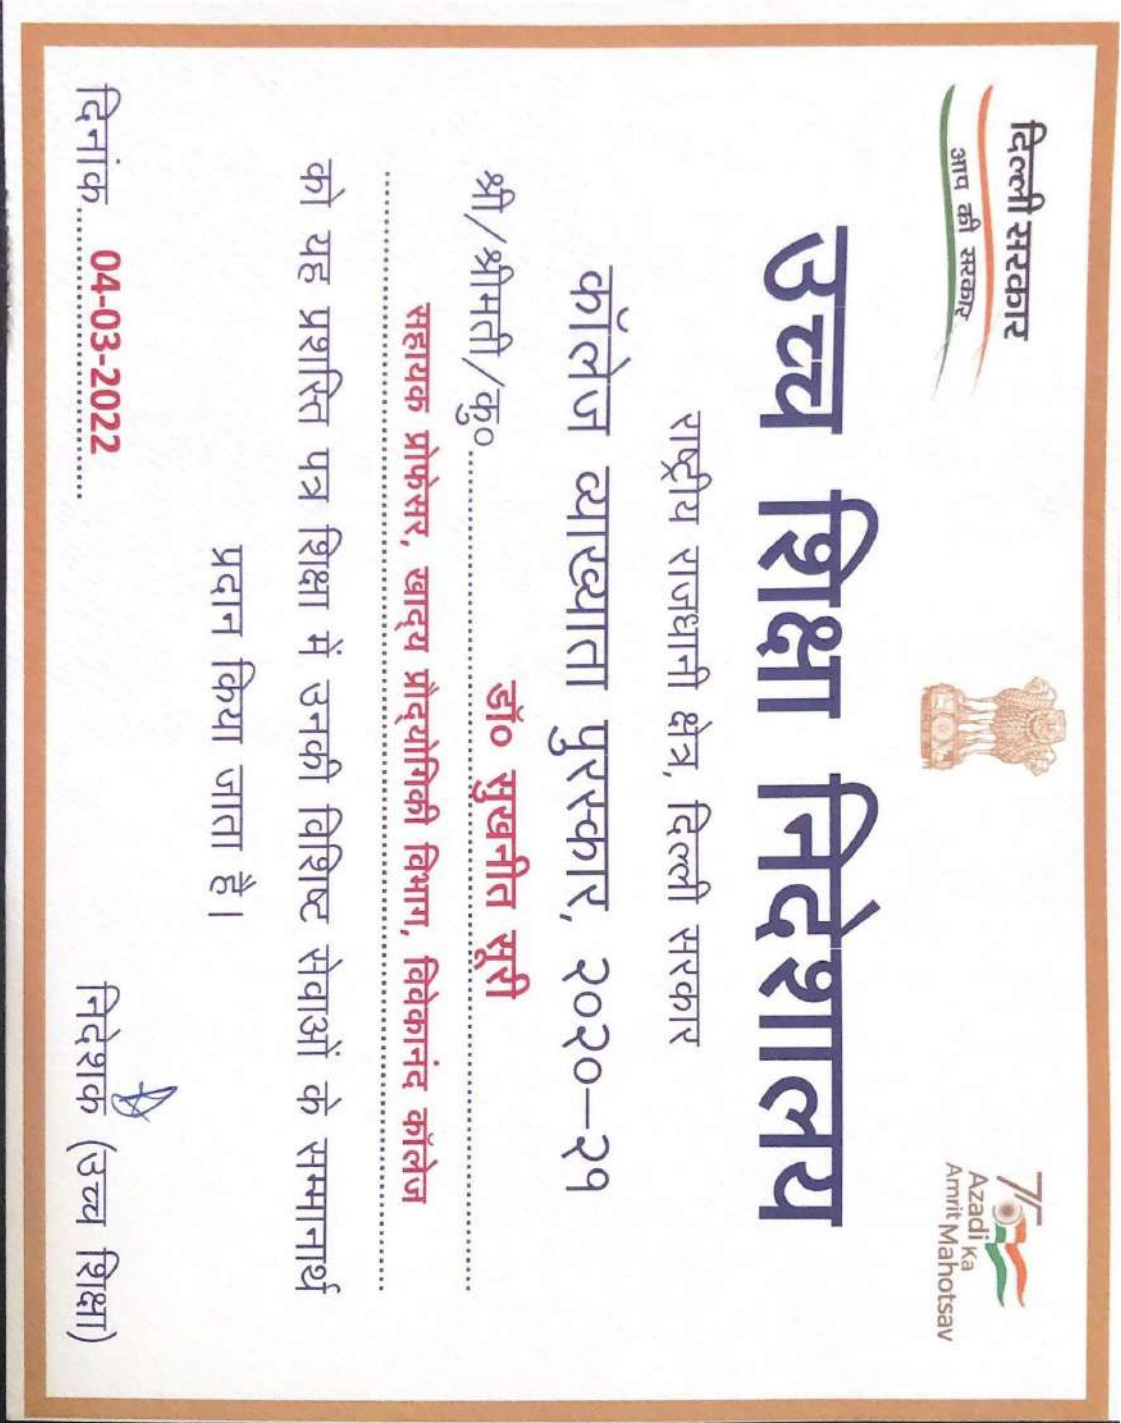 दिल्ली सरकार
आप की सरकार
75
Azadi Ka
Amrit Mahotsav
उच्च शिक्षा निदेशालय
राष्ट्रीय राजधानी क्षेत्र, दिल्ली सरकार
कॉलेज व्याख्याता पुरस्कार, २०२०–२१
श्री/श्रीमती/कु० डॉ० सुखनीत सूरी
सहायक प्रोफेसर, खाद्य प्रौद्योगिकी विभाग, विवेकानंद कॉलेज
को यह प्रशस्ति पत्र शिक्षा में उनकी विशिष्ट सेवाओं के सम्मानार्थ
प्रदान किया जाता है।
दिनांक 04-03-2022
निदेशक (उच्च शिक्षा)